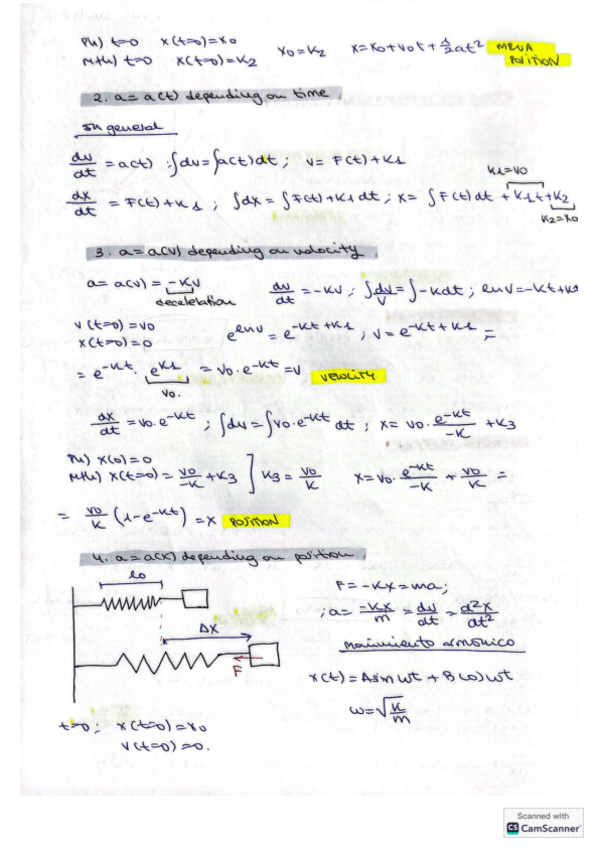 Ph) t=0 x(t=0)=x0
Mth) t=0 x(t=0)=K2 x0=K2 x=x0+v0t+1/2at² MRUA POSITION
2. a=a(t) depending on time.
In general
dv/dt = a(t) ; ∫dv=∫a(t)dt ; v= F(t)+K1
K1=v0
dx/dt = F(t)+K1 ; ∫dx = ∫F(t)+K1 dt ; x= ∫F(t)dt + K1t+K2
K2=x0
3. a=a(v) depending on velocity
a= a(v) = -Kv dv/dt = -Kv ; ∫dv/v = ∫-Kdt ; lnv=-Kt+K1
deceleration
v(t=0)=v0
x(t=0)=0 e^lnv = e^-Kt+K1 ; v=e^-Kt+K1 =
= e^-Kt · e^K1 = v0·e^-Kt = v VELOCITY
v0.
dx/dt = v0·e^-Kt ; ∫dx=∫v0·e^-Kt dt ; x= v0· e^-Kt/-K +K3
Ph) x(0)=0
Mth) x(t=0) = v0/-K +K3 ] K3 = v0/K x=v0· e^-Kt/-K + v0/K =
= v0/K (1-e^-Kt) = x POSITION
4. a=a(x) depending on position
l0
F=-Kx=ma;
; a= -Kx/m = dv/dt = d²x/dt²
Δx
F
Movimiento armónico
x(t)=Asinωt + Bcosωt
ω=√K/m
t=0; x(t=0)=x0
v(t=0)=0.
Scanned with
CS CamScanner